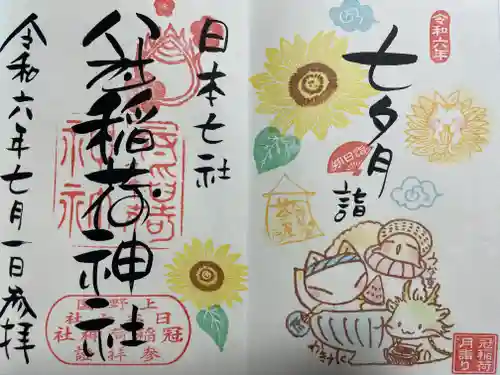 日本七社
冠稲荷神社
令和六年七月一日参拝
上野國
日本七社
冠稲荷神社
令和六年
七夕月詣
朔日詣
冠稲荷
月詣り